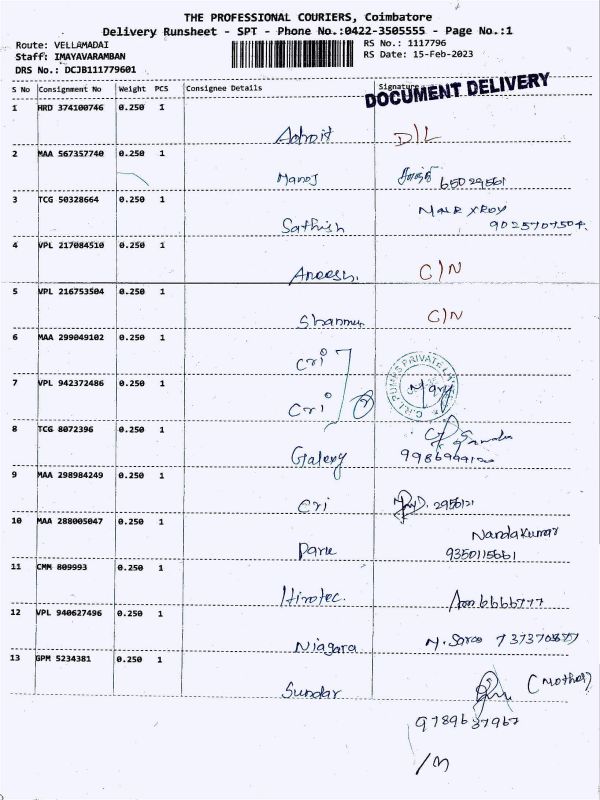 THE PROFESSIONAL COURIERS, Coimbatore
Delivery Runsheet - SPT - Phone No.:0422-3505555 - Page No.:1
Route: VELLAMADAI RS No.: 1117796
Staff: IMAYAVARAMBAN RS Date: 15-Feb-2023
DRS No.: DCJB111779601
S No Consignment No Weight PCS Consignee Details Signature
DOCUMENT DELIVERY
1 HRD 374100746 0.250 1
Adroit D/L
2 MAA 567357740 0.250 1
Manoj 65029561
3 TCG 50328664 0.250 1
Sathish 9025707504
4 VPL 217084510 0.250 1
Aneesh. C/N
5 VPL 216753504 0.250 1
Shanmu C/N
6 MAA 299049102 0.250 1
Cri
7 VPL 942372486 0.250 1
Cri 2 C.R.I. PUMPS PRIVATE
8 TCG 8072396 0.250 1
Galexy
9 MAA 298984249 0.250 1
Cri 2956121
10 MAA 288005047 0.250 1
Nandakumar
9350115661
11 CMM 809993 0.250 1
Hirotec. 6666777
12 VPL 940627496 0.250 1
Niagara
13 GPM 5234381 0.250 1
Sundar (Mother)
9789637967
/13